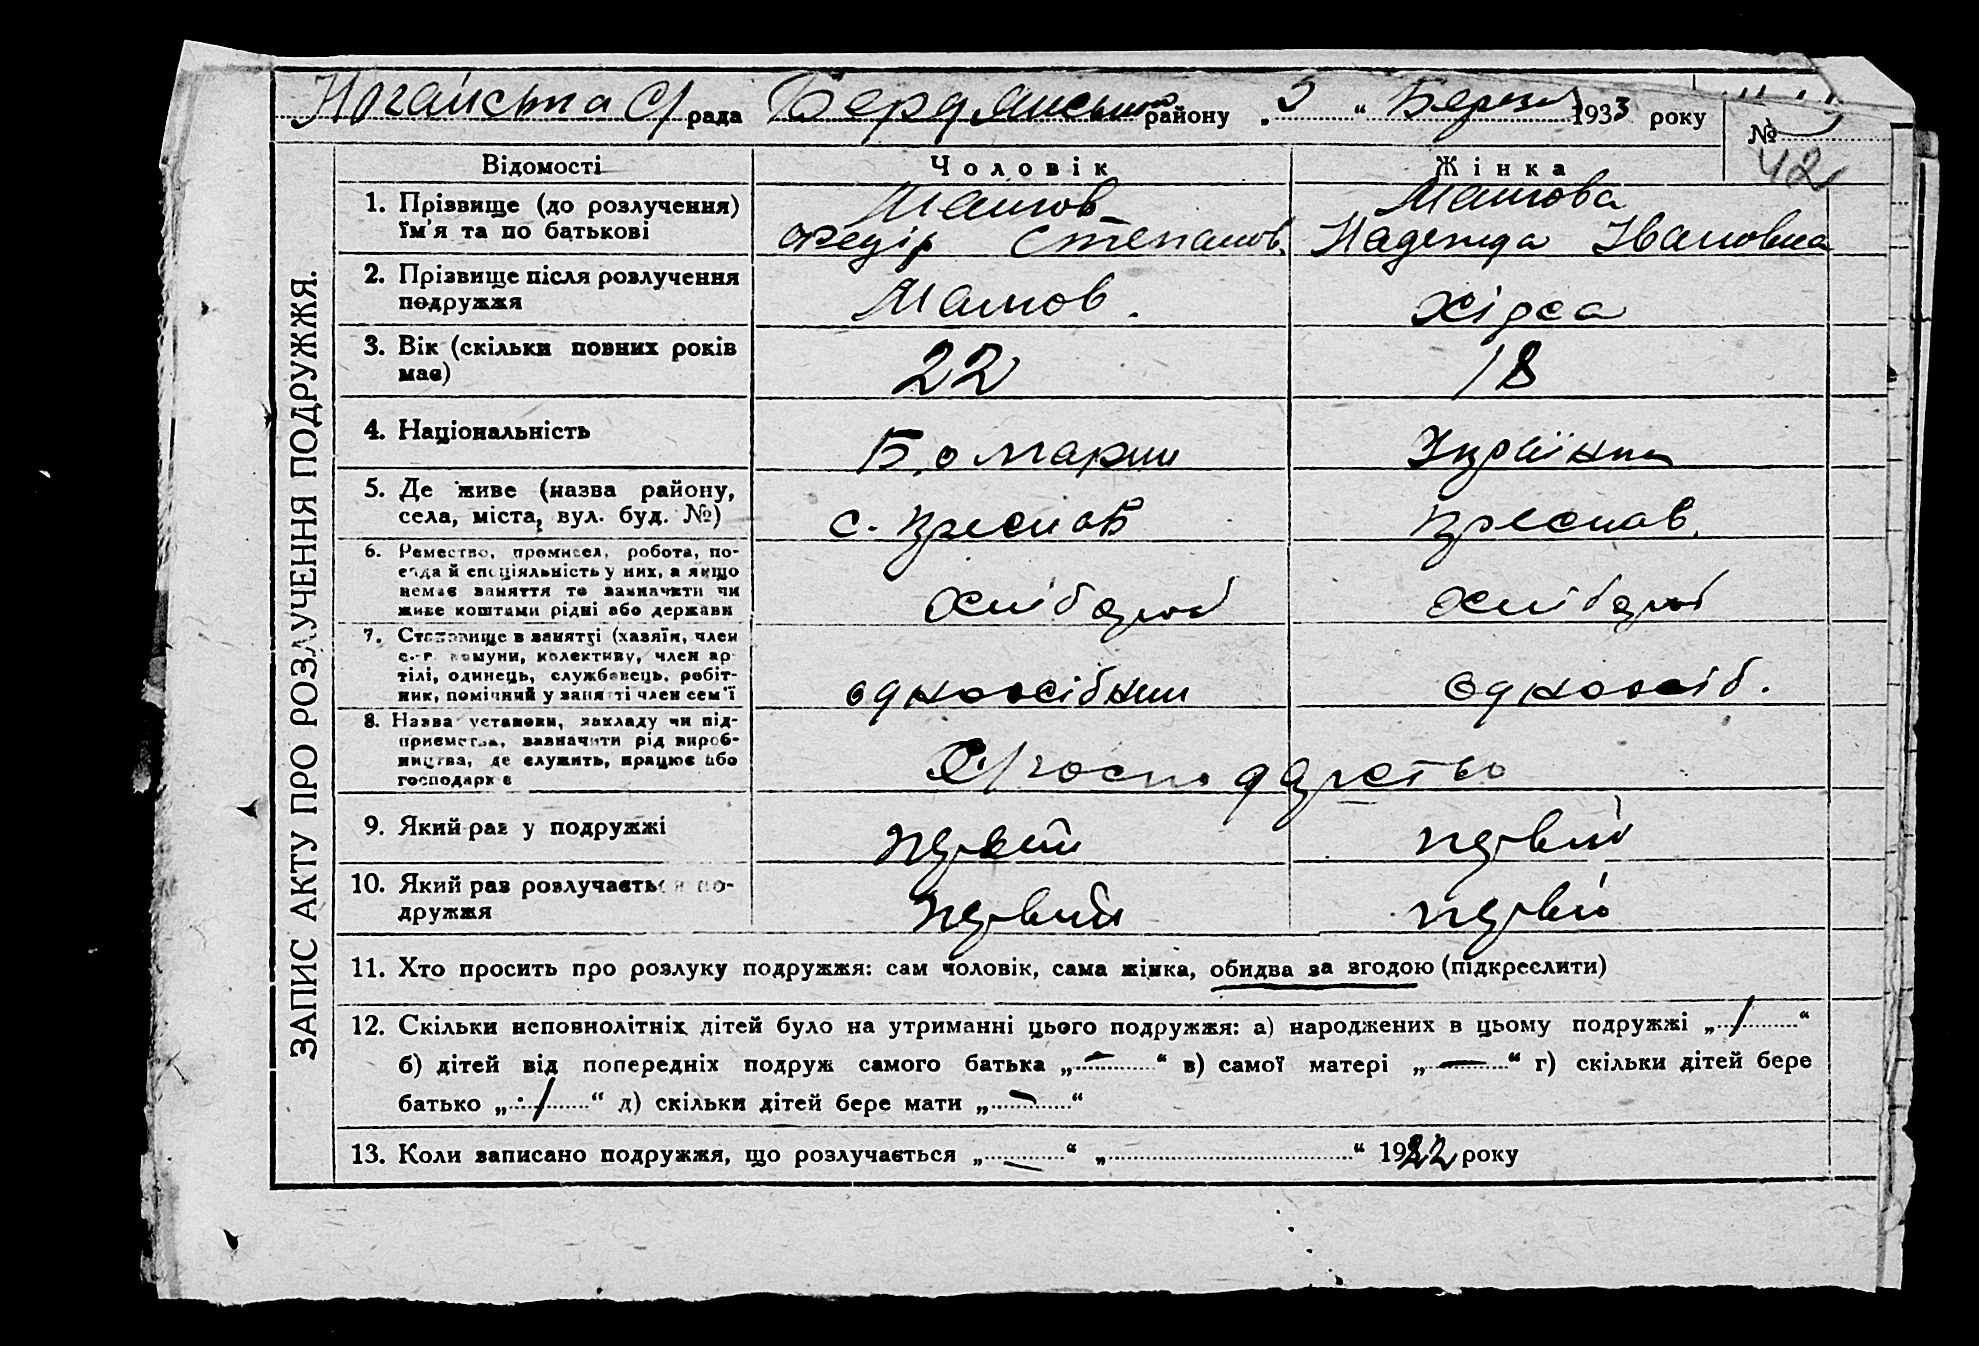 Ногайська С/рада Бердянського району „ 3 “ Березня 1933 року
№
42
ЗАПИС АКТУ ПРО РОЗЛУЧЕННЯ ПОДРУЖЖЯ.
Відомості Чоловік Жінка
1. Прізвище (до розлучення) їм'я та по батькові
Федір Степанов.
Надежда Івановна
2. Прізвище після розлучення подружжя
3. Вік (скільки повних років має) 22 18
4. Національність Українка
5. Де живе (назва району, села, міста, вул. буд. №) с. Преслав Преслав.
6. Ремество, промисел, робота, посада й спеціяльність у них, а якщо немає заняття то зазначити чи живе коштами рідні або держави хлібороб хлібороб
7. Становище в занятті (хазяїн, член с.-г. комуни, колективу, член артілі, одинець, службовець, робітник, помічний у занятті член сем'ї одноосібник одноосіб.
8. Назва установи, закладу чи підприємства, зазначити рід виробництва, де служить, працює або господарює С/господарство
9. Який раз у подружжі первий первий
10. Який раз розлучається подружжя первий первий
11. Хто просить про розлуку подружжя: сам чоловік, сама жінка, обидва за згодою (підкреслити)
12. Скільки неповнолітніх дітей було на утриманні цього подружжя: а) народжених в цьому подружжі „ 1 “
б) дітей від попередніх подруж самого батька „ — “ в) самої матері „ — “ г) скільки дітей бере
батько „ 1 “ д) скільки дітей бере мати „ — “
13. Коли записано подружжя, що розлучається „ — “ „ “ 19 року